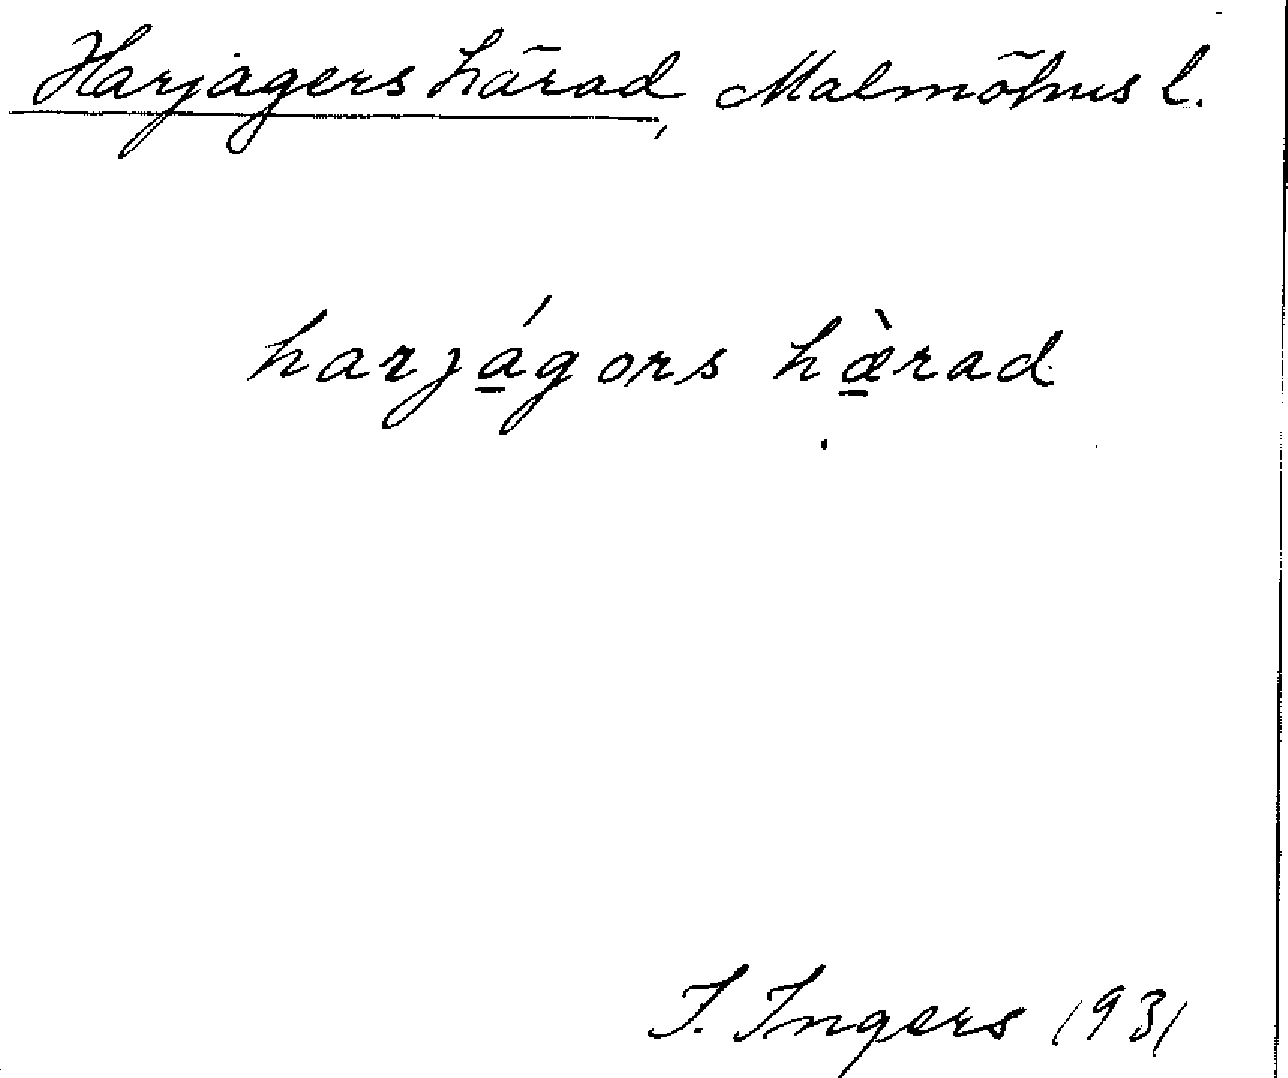 Harjagers härad, Malmöhus l.
harjá̱gors hæ̱̀rad
I. Ingers 1931